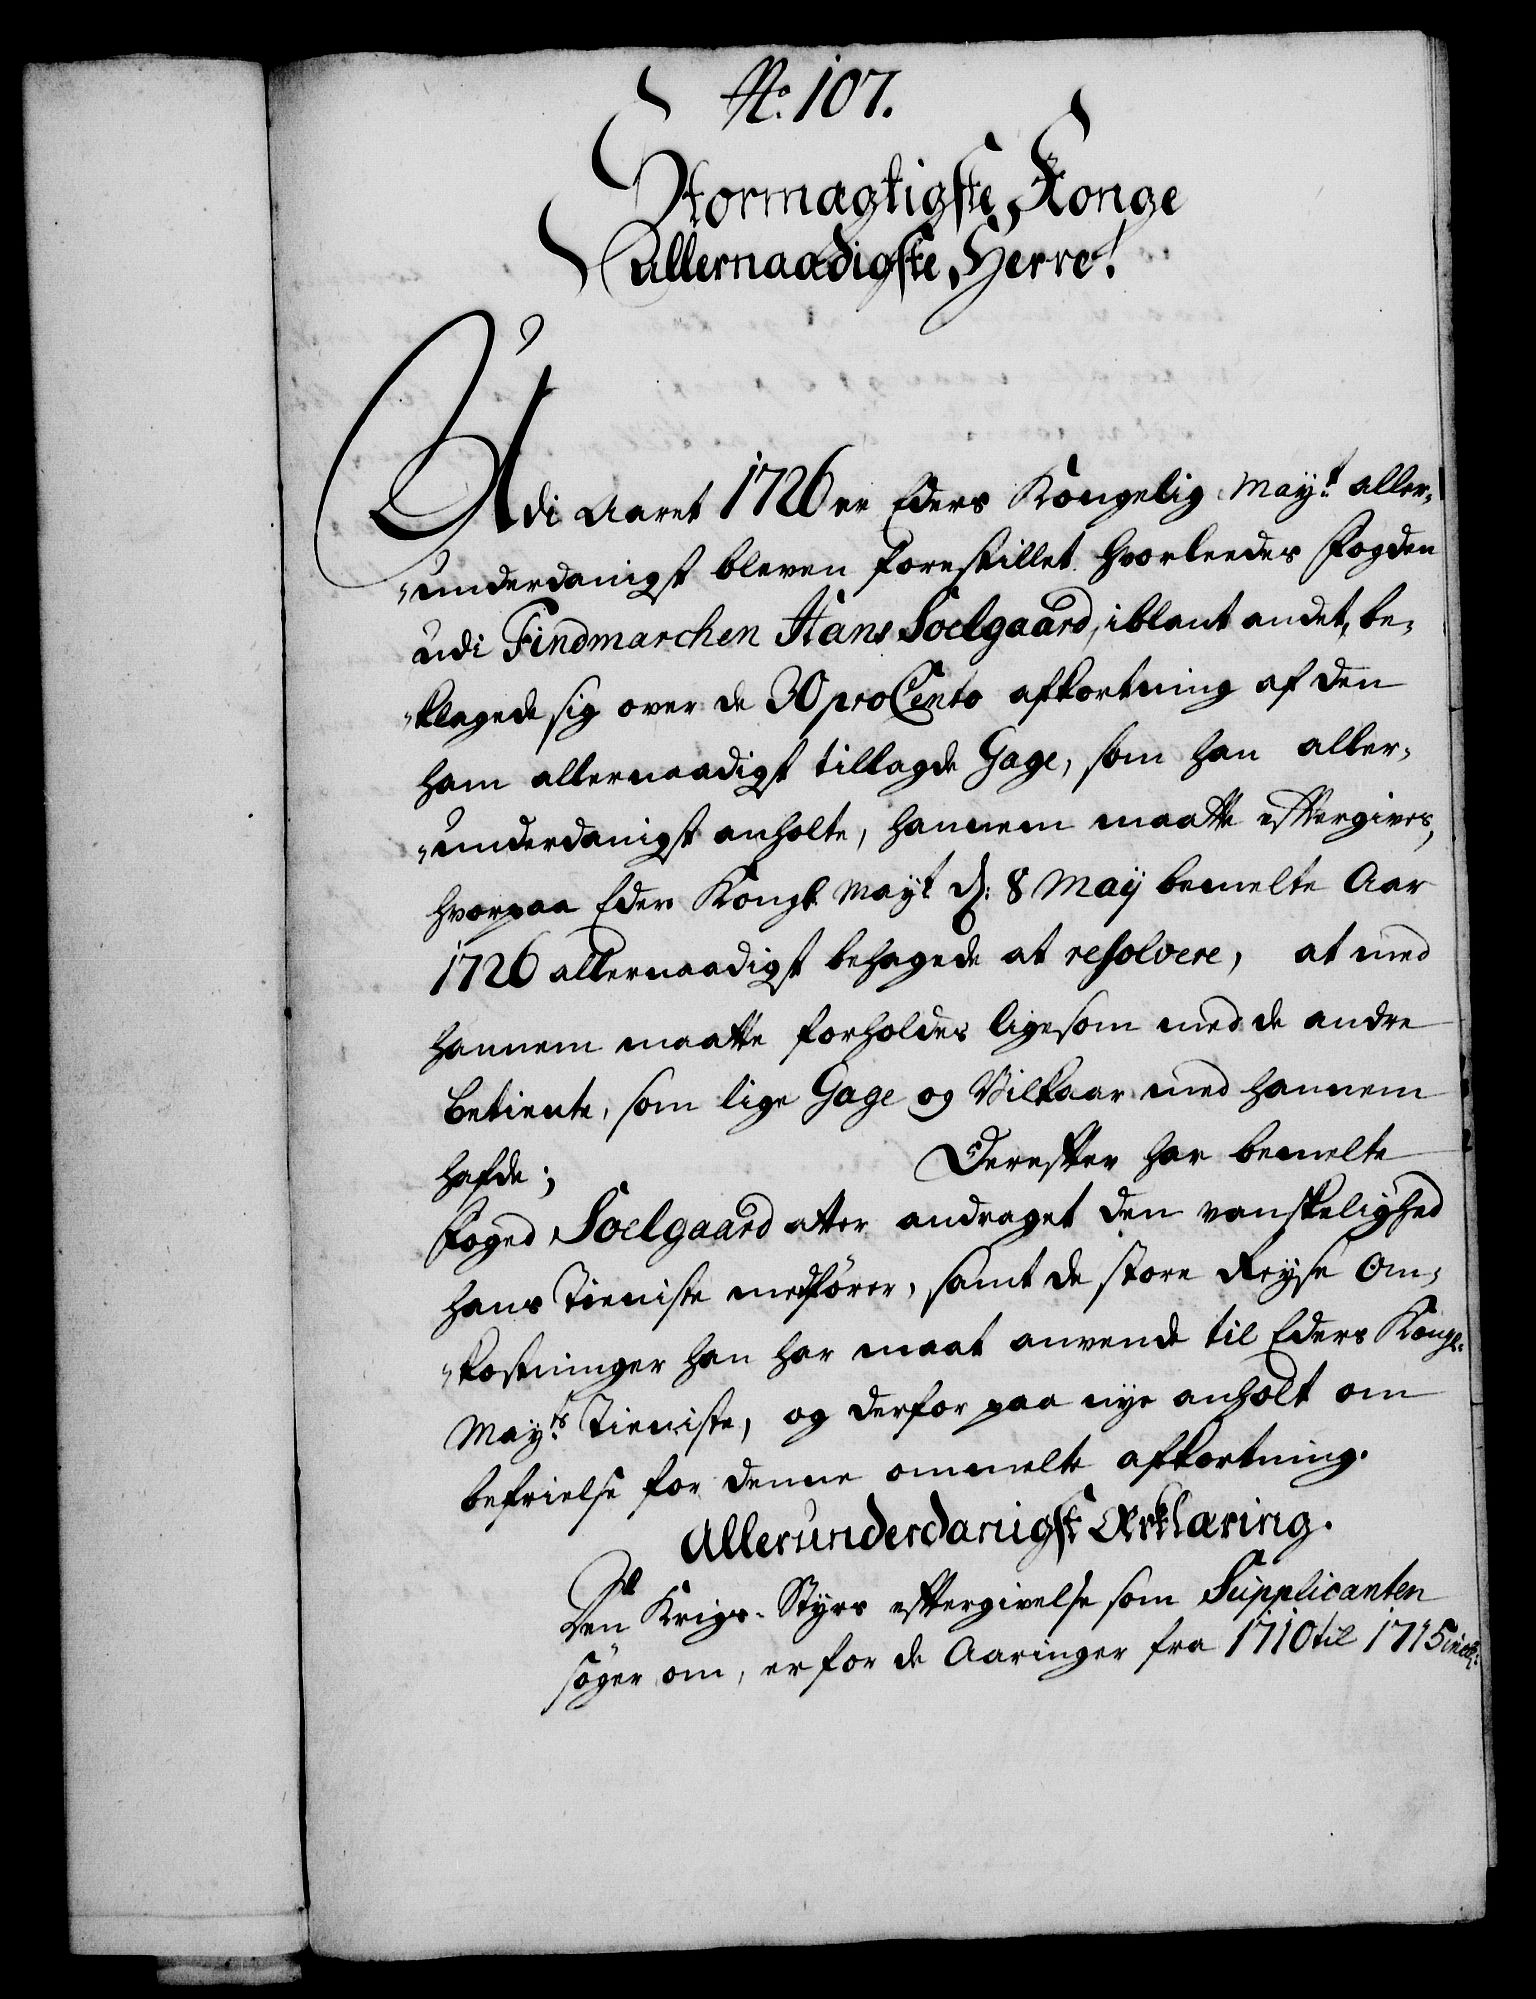 No. 107.
Stormagtigste Konge
Allernaadigste Herre!
Udi Aaret 1726 er Eders Kongelig May.t aller-
underdanigst bleven forestillet hvorleedes Fogden
udi Findmarchen Hans Soelgaard, iblant andet, be-
klagede sig over de 30 pro Cento afkortning af den
ham allernaadigst tillagde Gage, som han aller-
underdanigst anholte, hannem maatte efftergives,
hvorpaa Eders Kongl. May.t d: 8 Maÿ bemelte Aar
1726 allernaadigst behagede at resolvere, at med
hannem maatte forholdes ligesom med de andre
betiente, som lige Gage og Vilkaar med hannem
hafde; Derefter har bemelte
Foged Soelgaard atter andraget den vanskelighed
hans Tieniste medfører, samt de store Reyse Om-
kostninger han har maat anvende til Eders Kongl.
May.ts Tieniste, og derfor paa nye anholt om
befrielse for denne ommelte afkortning.
Allerunderdanigst Erklæring.
Den Krigs-Styrs efftergivelse som Supplicanten
søger om, er for de Aaringer fra 1710 til 1715 incl: